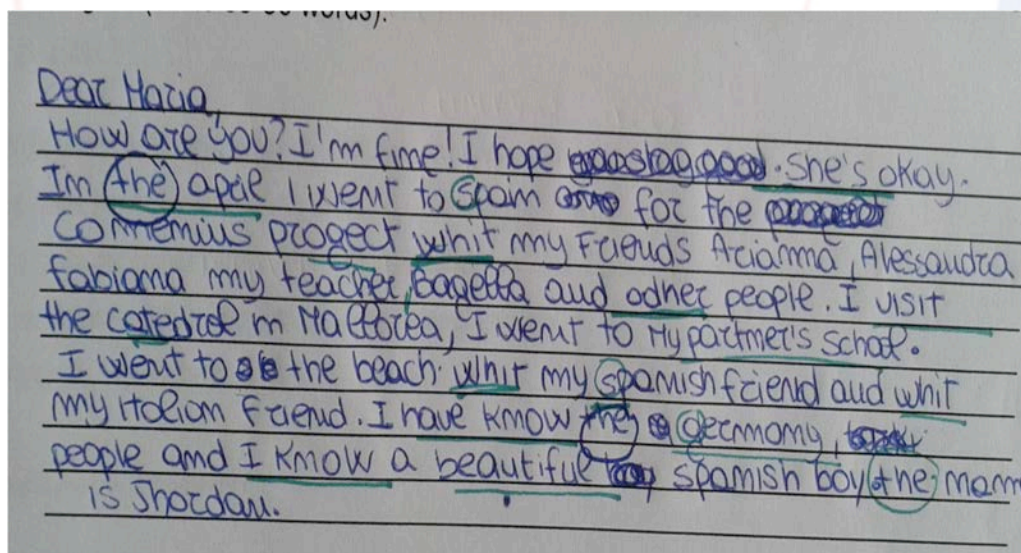 Dear Maria,
How are you? I'm fine! I hope . She's okay.
In the april I went to Spain for the
Commenius progect whit my Friends Arianna, Alessandra
fabiana my teacher, bagella and odher people. I visit
the catedral in Mallorca, I went to My partner's school.
I went to the beach whit my spanish friend and whit
my italian friend. I have know the germany,
people and I know a beautiful spanish boy the name
is Jhordan.